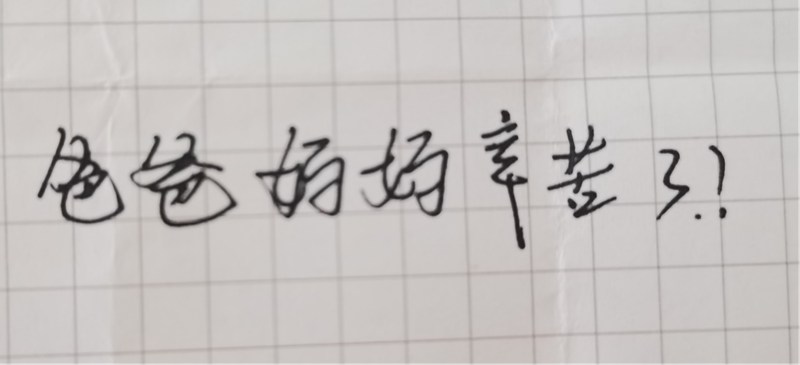 爸爸妈妈辛苦了.!